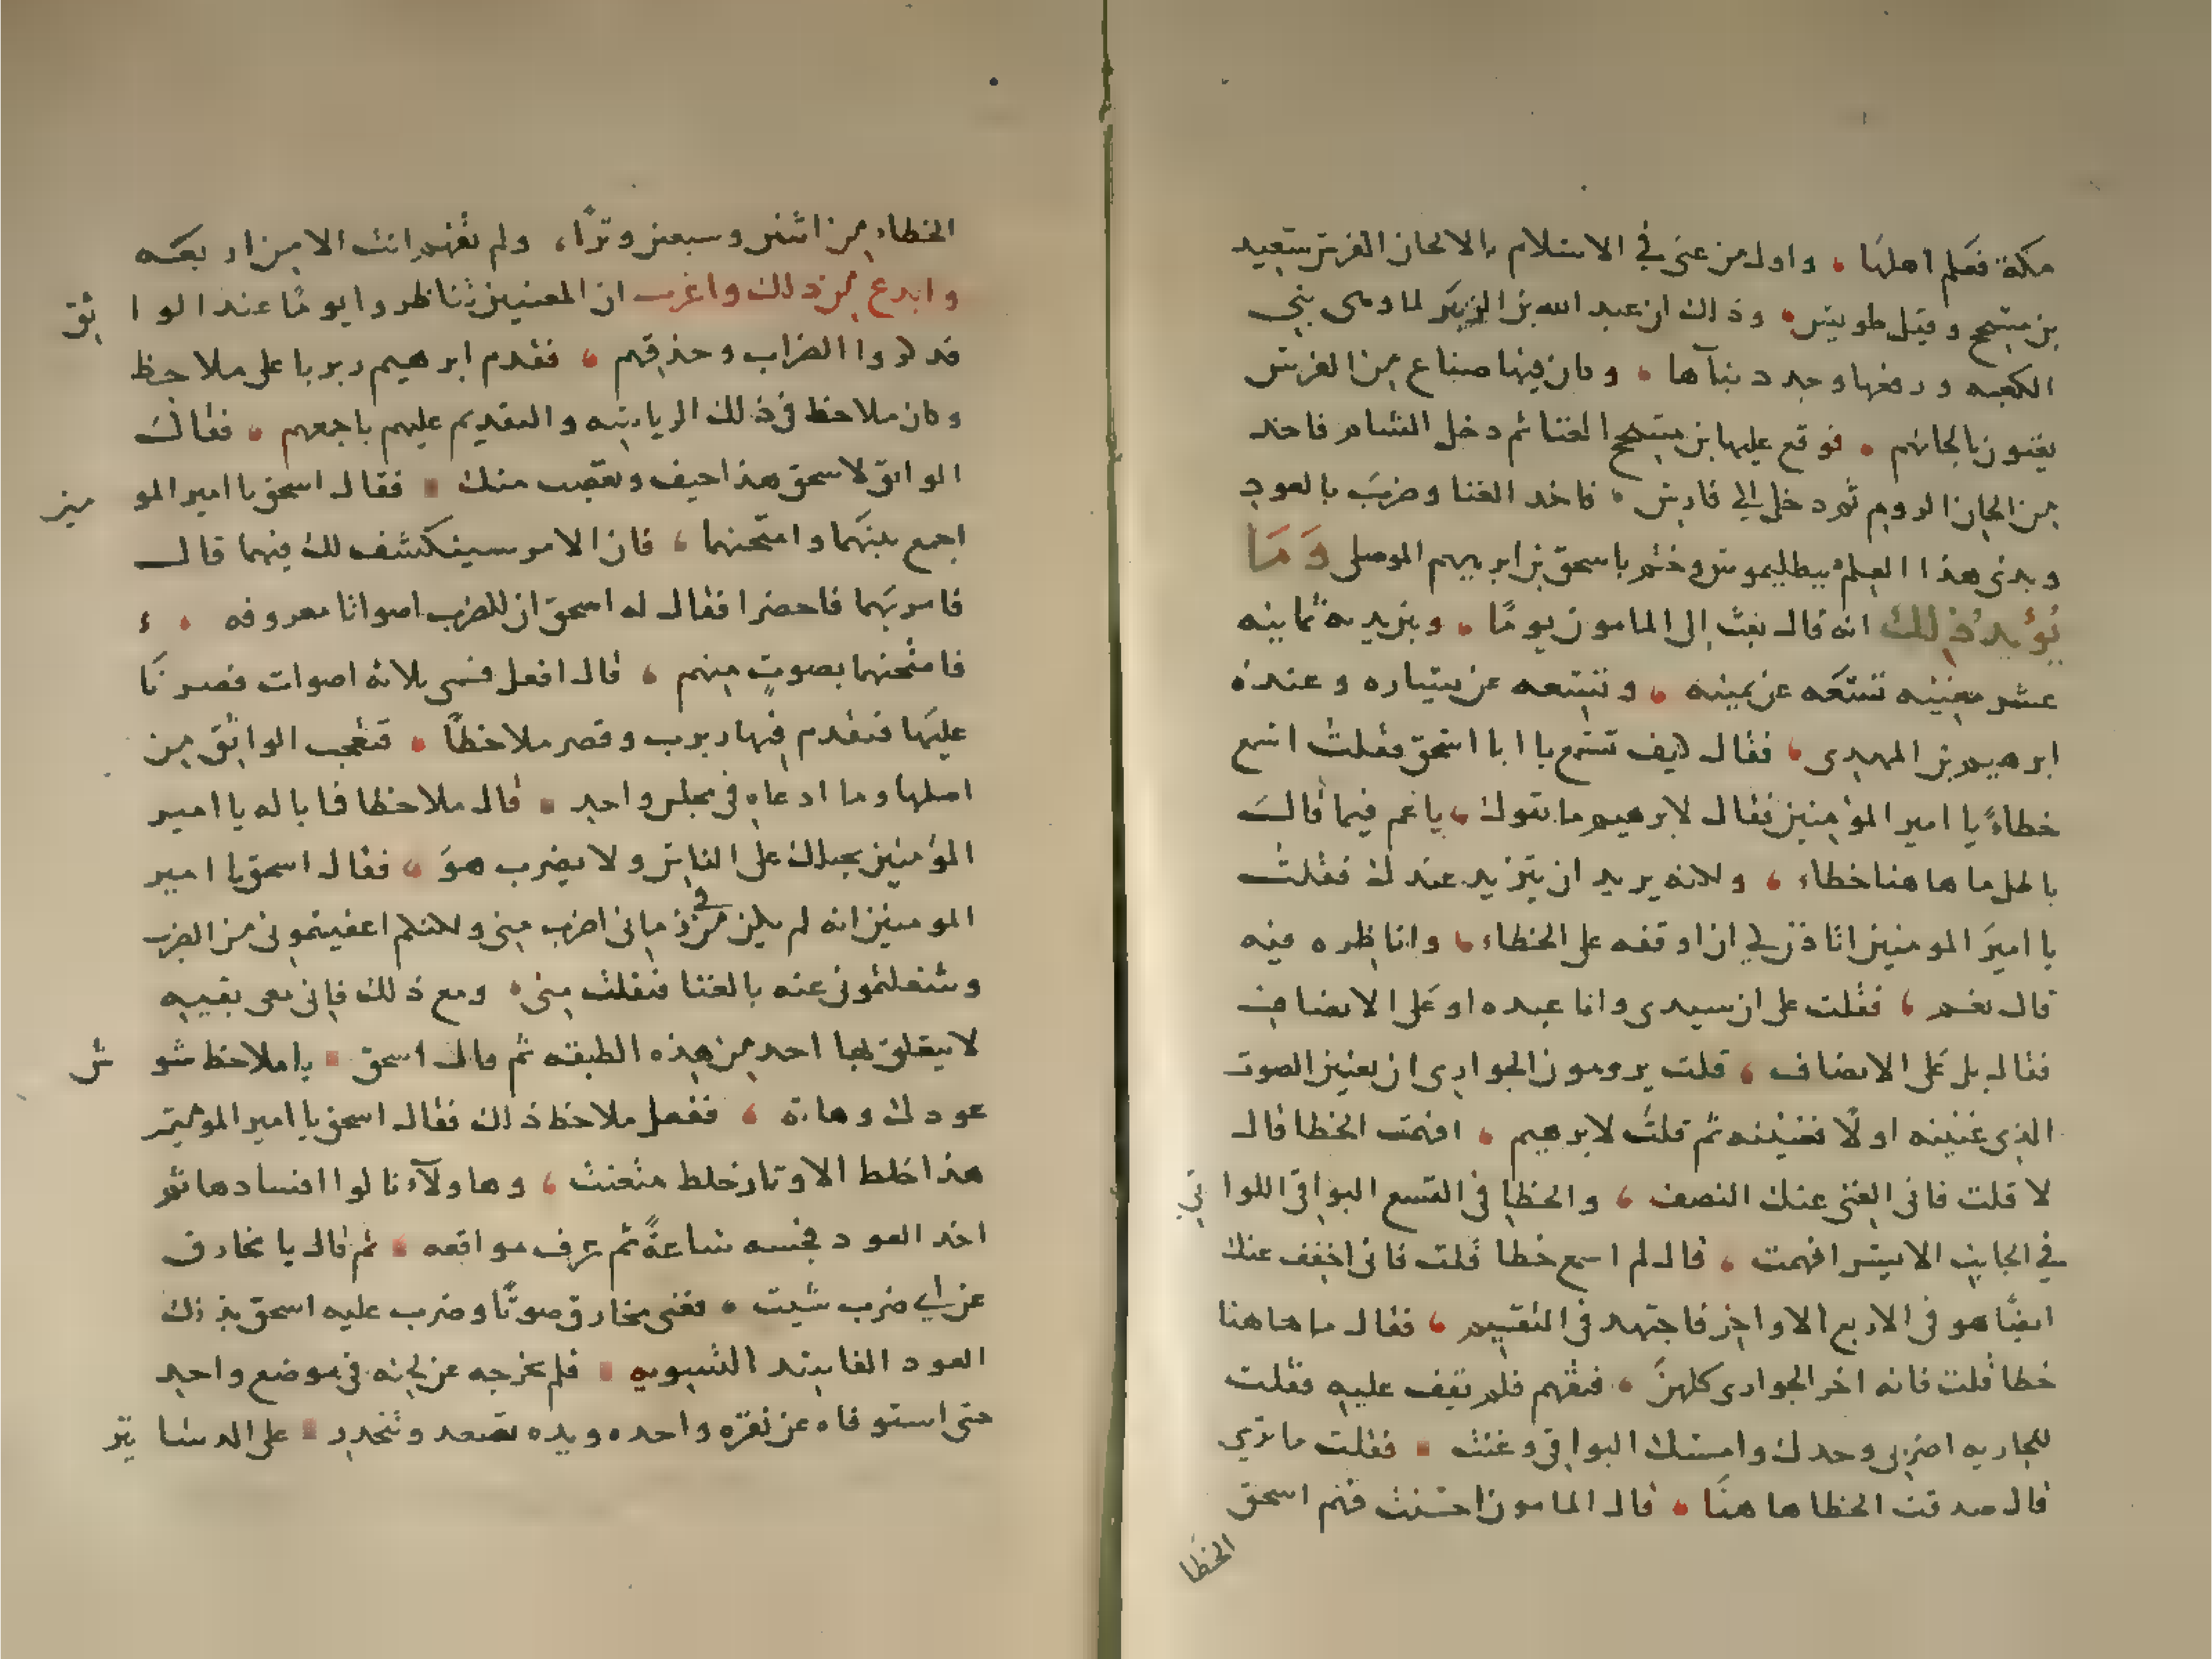 مكة فعلم اهلها ، واول من غنى في الاسلام بالالحان الفرس سعيد
بن مسجح وقيل طويس ، وذلك ان عبد الله بن الزبير لما وهى بنى
الكعبه ورفعها وجدد بنآها ، وكان فيها صناع من الفرس
يغنون بالحانهم ، فوقع عليها بن مسجح الغنا ثم دخل الشام فاخذ
من الحان الروم ثم دخل الى فارس ، فاخذ الغنا وضرب بالعود
وبدئ هذا العلم ببطليموس وختم باسحق بن ابرهيم الموصلى وَمَا
يُؤيدُ ذلك انه قال بعث الى المامون يومًا ، وبين يديه ثمانيه
عشر مغنيه تسعه عن يمينه ، وتسعه عن يساره وعنده
ابرهيم بن المهدى ، فقال كيف تسمع يا ابا اسحق فقلت اسمع
خطاءً يا امير المؤمنين فقال لابرهيم ما تقول ، يا عم فيما قال
باطل ما هاهنا خطاء ، ولكنه يريد ان يتزيد عندك فقلت
يا اميرَ المومنين اتاذن لي ان اوقفه على الخطاء ، واناظره فيه
قال نعم ، فقلت على ان سيدى وانا عبده او على الانصاف
فقال بل على الانصاف ، قلت يرومون الجوارى ان يغنين الصوت
الذى غنينه اولًا فغنينه ثم قلت لابرهيم ، افهمت الخطا قال
لا قلت فانى الغى عنك النصف ، والخطا فى التسع البواقى اللواتي
في الجانب الايسر افهمت ، قال لم اسمع خطا قلت فانى اخفف عنك
ايضًا هو فى الاربع الاواخر فاجتهد فى التقسيم ، فقال ما هاهنا
خطا قلت فانه اخر الجوارى كلهنَّ ، فتفهم فلم تقف عليه فقلت
للجاريه اضربى وحدك وامسك البواقى وغنت فقلت ما ترى
قال صدقت الخطا هاهنا ، قال المامون احسنت فهم اسحق
الخطا
الخطاء من اثنين وسبعين وترًا ، ولم تفهم انت الا من اربعه
وابدع من ذلك واغرب ان المغنيين تناظروا يومًا عند الواثق
فذكروا الضراب وحذقهم ، فقدم ابرهيم ربربا على ملاحظ
وكان ملاحظ فى ذلك الرياسه والتقديم عليهم باجمعهم ، فقال
الواثق لاسحق هذا حيف وتعصب منك فقال اسحق يا امير المومنين
اجمع بينهما وامتحنهما ، فان الامر سينكشف لك فيهما قال
فامر بهما فاحضرا فقال له اسحق ان للضرب اصواتا معروفه ،
فامتحنهما بصوتٍ منهم ، قال افعل فسمى ثلاثه اصوات فضربا
عليها فتقدم فيها ربرب وقصر ملاحظًا ، فتعجب الواثق من
اصلها وما ادعاه فى مجلس واحد قال ملاحظا فا باله يا امير
المؤمنين يحيلك على الناس ولا يضرب هوَ ، فقال اسحق يا امير
المومنين انه لم يكن فى زمانى اضرب منى ولكنكم اعفيتمونى من الضرب
وشغلتمونى عنه بالغنا فتفلت منى ، ومع ذلك فإنى معى بقيه
لا يتعلق بها احد من هذه الطبقه ثم قال اسحق يا ملاحظ شوش
عودك وهاته ، ففعل ملاحظ ذلك فقال اسحق يا امير المؤمنين
هذا خلط الاوتار خلط متعنت ، وهاولآء نالوا افسادها ثم
اخذ العود فجسه ساعةً ثم عرف مواقعه ثم قال يا مخارق
غن لي ضرب شيت ، فغنى مخارق صوتًا وضرب عليه اسحق بذلك
العود الفاسد التسويه فلم يخرجه عن لحنه فى موضع واحد
حتى استوفاه عن نقره واحده ويده تصعد وتنحدر على الدساتين